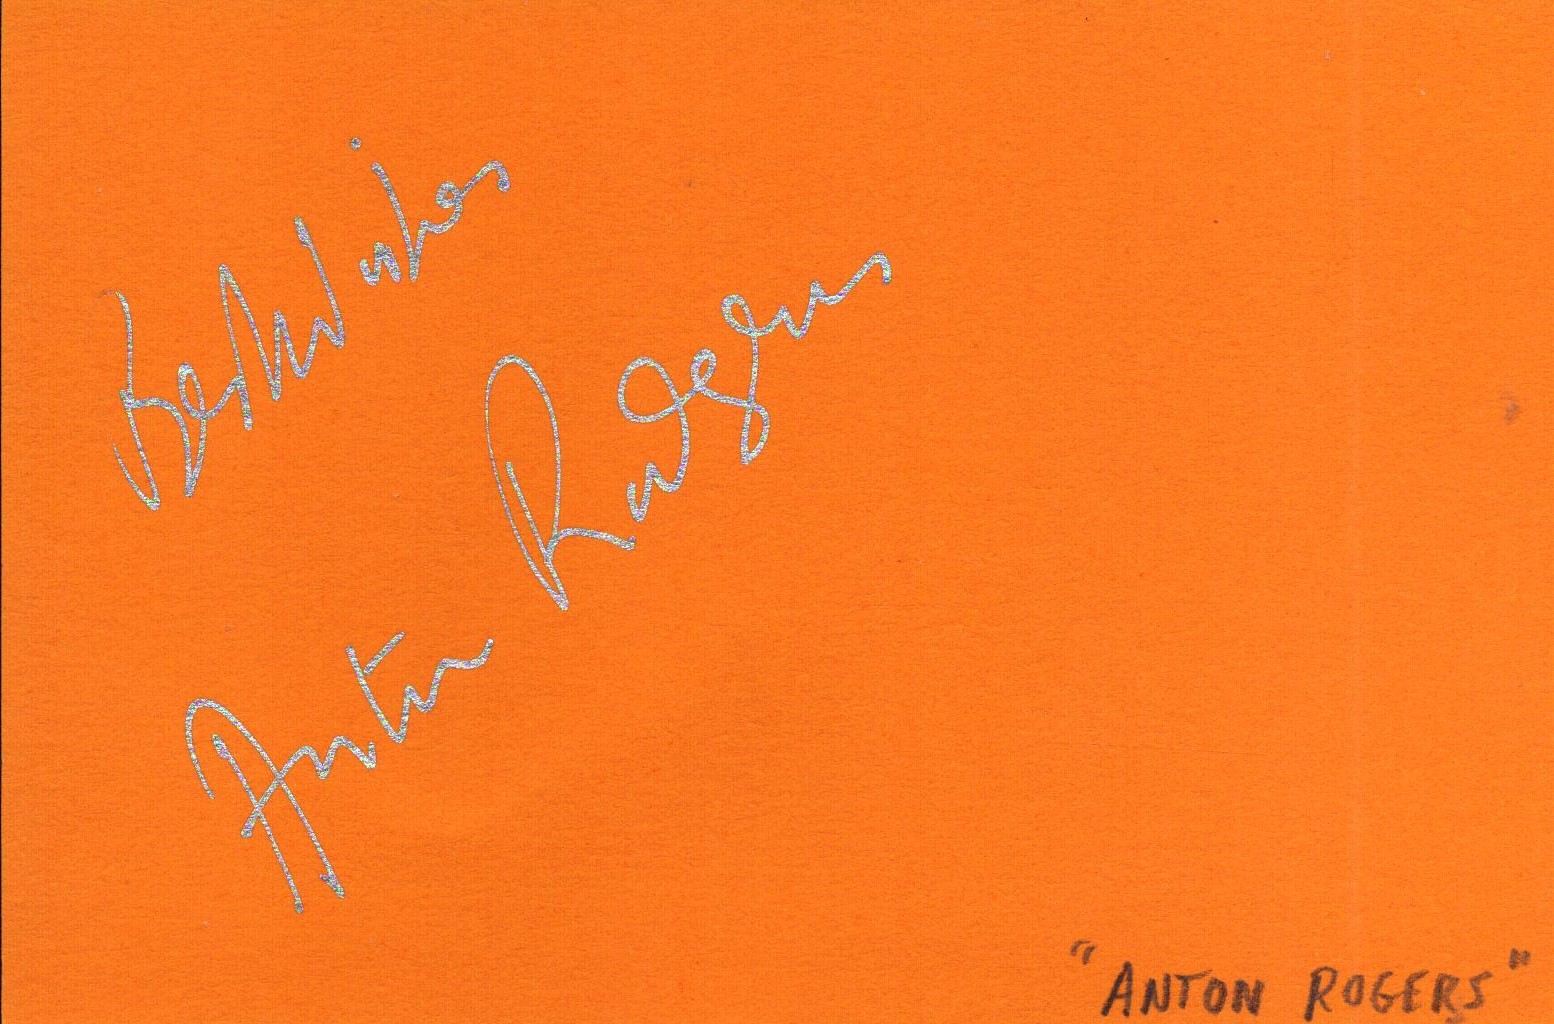 Best Wishes
Anton Rodgers
"ANTON ROGERS"